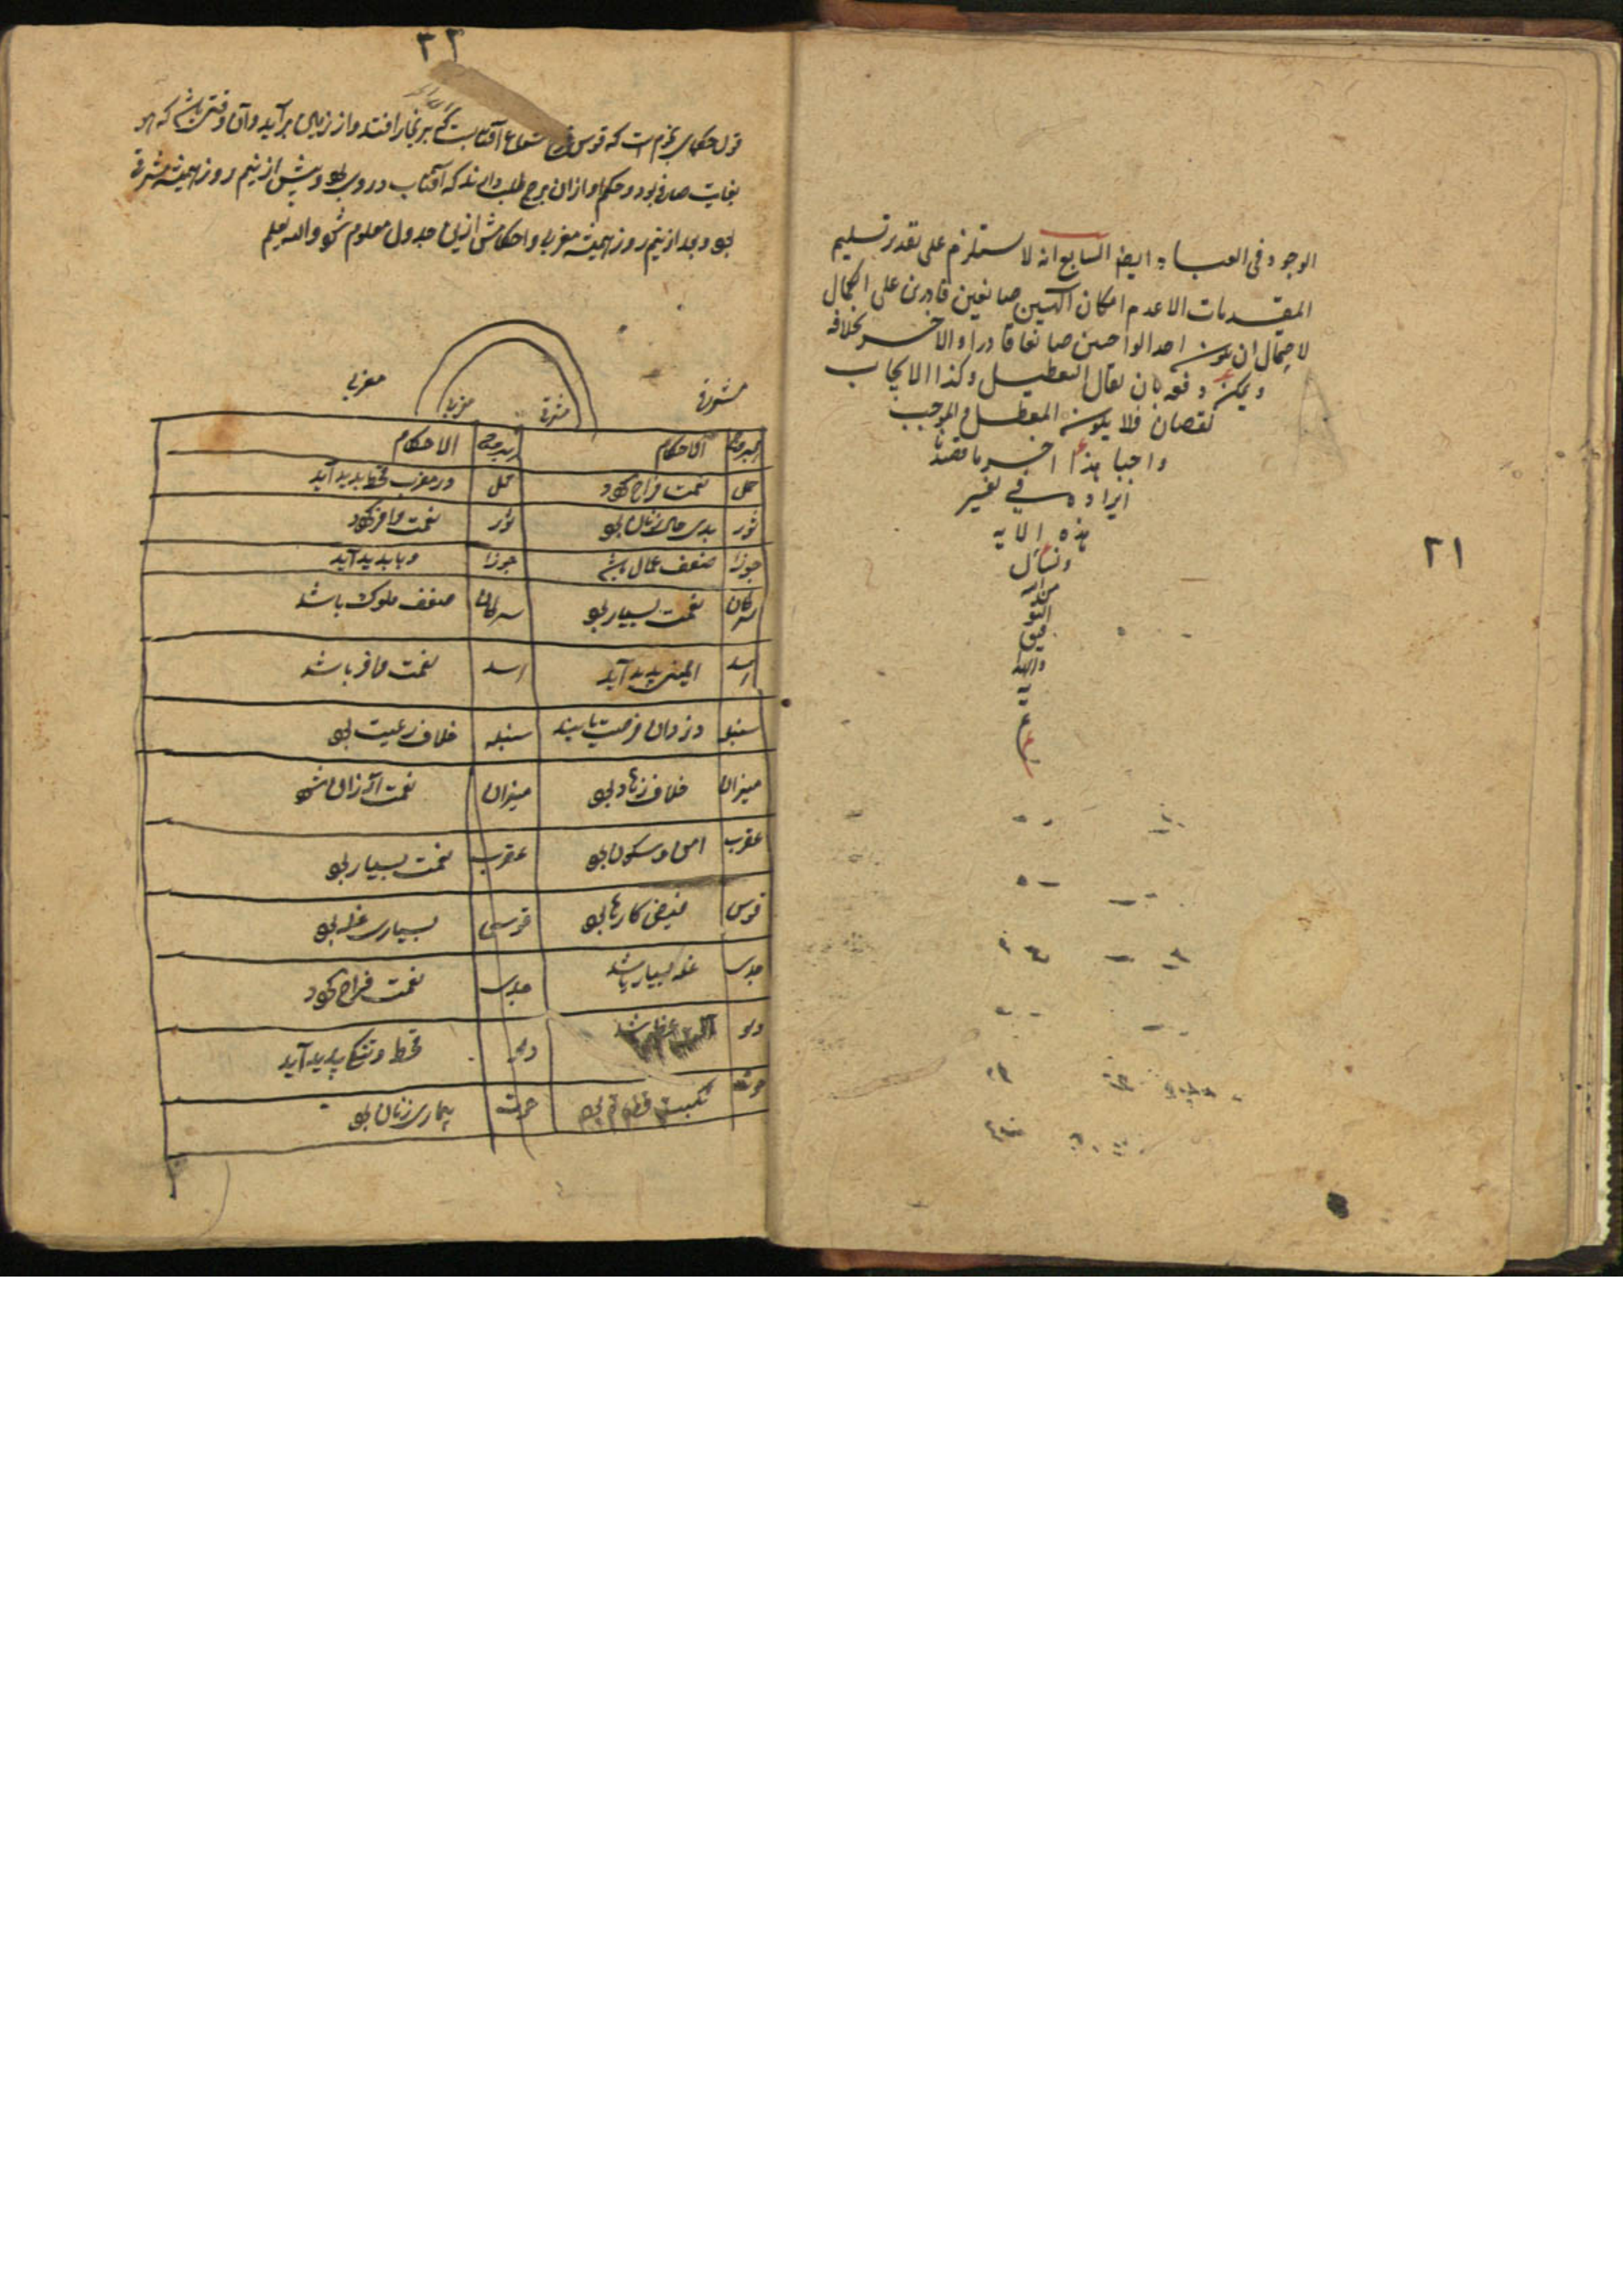 الوجود فی العباد ایضا السابع انه لا یستلزم علی تقدیر تسلیم
المقدمات الا عدم امکان الٓهین صانعین قادرین علی الکمال
لاحتمال ان یکون احد الواجبین صانعا قادرا والاخر بخلافه
ویمکن دفعه بان یقال التعطیل وکذا الایجاب
نقصان فلا یکون المعطل والموجب
واجبا هذا اخر ما قصدنا
ایراده فی تفسیر
هذه الایه
ونسأل
من الله
التو
فیق
والهدا
یه
م
۲۱
۲۲
قول حکمای نجوم است که قوس قزح شعاع آفتابست که بر بخار افتد و از زمین برآید و آن وقتی باشد که هوا
بغایت صافی بود و حکم او از ان برج طلب دارند که آفتاب در وی بود و پیش از نیم روز همیشه مشرقی
بود و بعد از نیم روز همیشه مغربی و احکامش ازین جدول معلوم شود والله یعلم
مشرقی مغربی
مشرقی مغربی
الاحکام الاحکام
حمل نعمت فراخ گردد حمل در مغرب قحط پدید آید
ثور بدی حال زنان بود ثور نعمت وافر گردد
جوزا ضعف عمال باشد جوزا وبا پدید آید
سرطان نعمت بسیار بود سرطان ضعف ملوک باشد
اسد ایمنی پدید آید اسد نعمت وافر باشد
سنبله دزدان فرصت یابند سنبله خلاف رعیت بود
میزان خلاف زهاد بود میزان نعمت ارزان شود
عقرب امن و سکون بود عقرب نعمت بسیار بود
قوس فیض کارها بود قوس بسیاری غله بود
جدی غله بسیار باشد جدی نعمت فراخ گردد
دلو دلو قحط و تنگی پدید آید
حوت نکبت بود حوت بیماری زنان بود